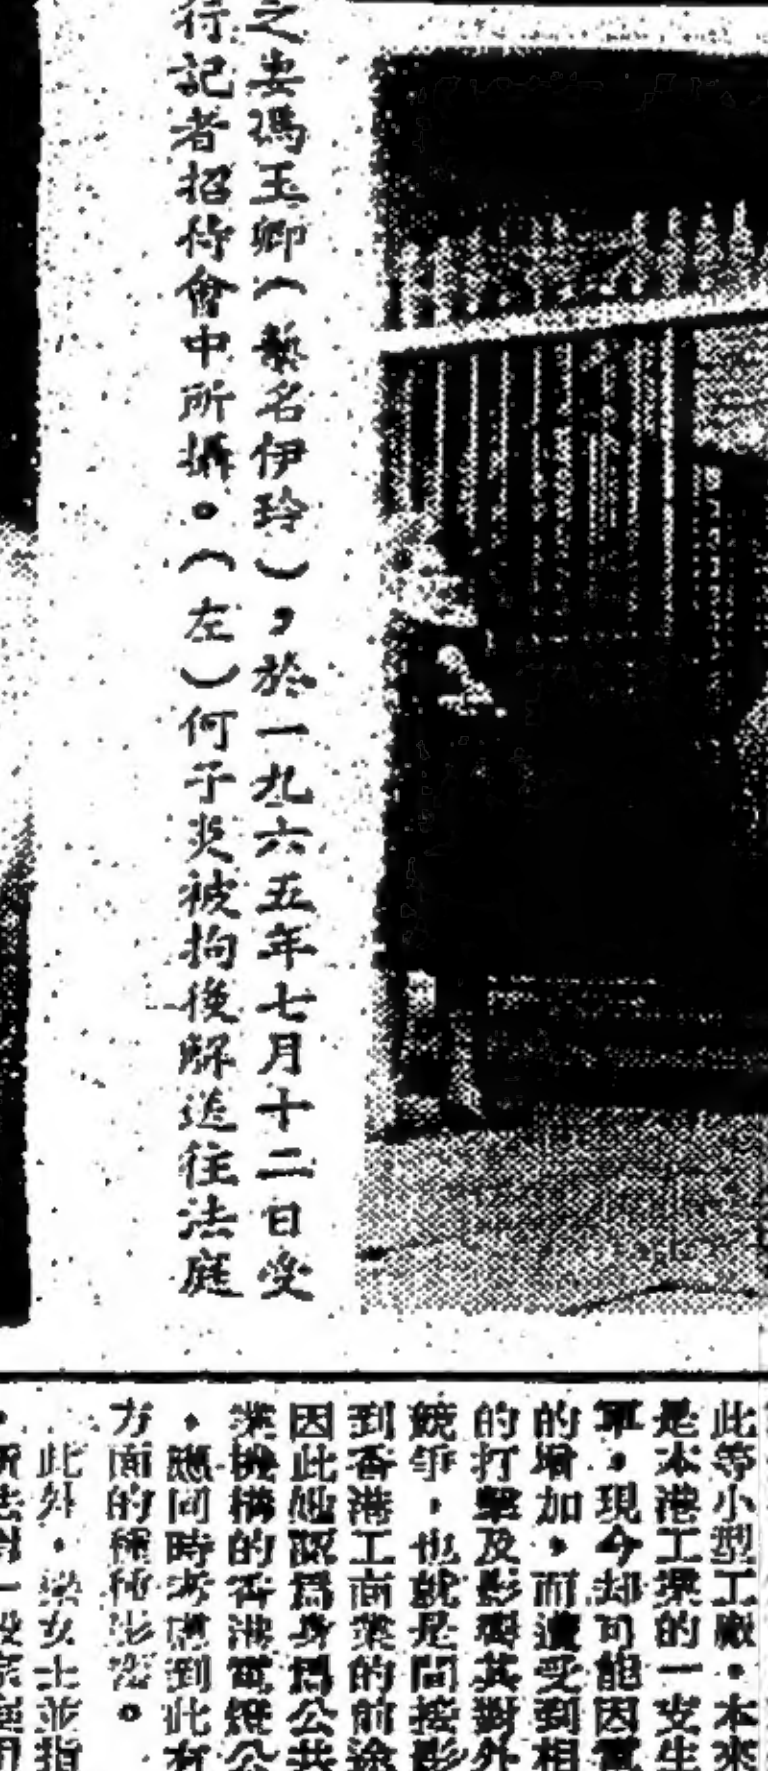 之妻馮玉卿（藝名伊玲），於一九六五年七月十二日受
行記者招待會中所攝。（左）何子炎被拘後解送往法庭
此等小型工廠，本來
是本港工業的一支生
軍，現今却可能因電
的增加，而遭受到相
的打擊及影響其對外
競爭，也就是間接影
到香港工商業的前途
因此她認爲身爲公共
業機構的香港電燈公
，應同時考慮到此有
方面的種種影响。
此外，梁女士並指